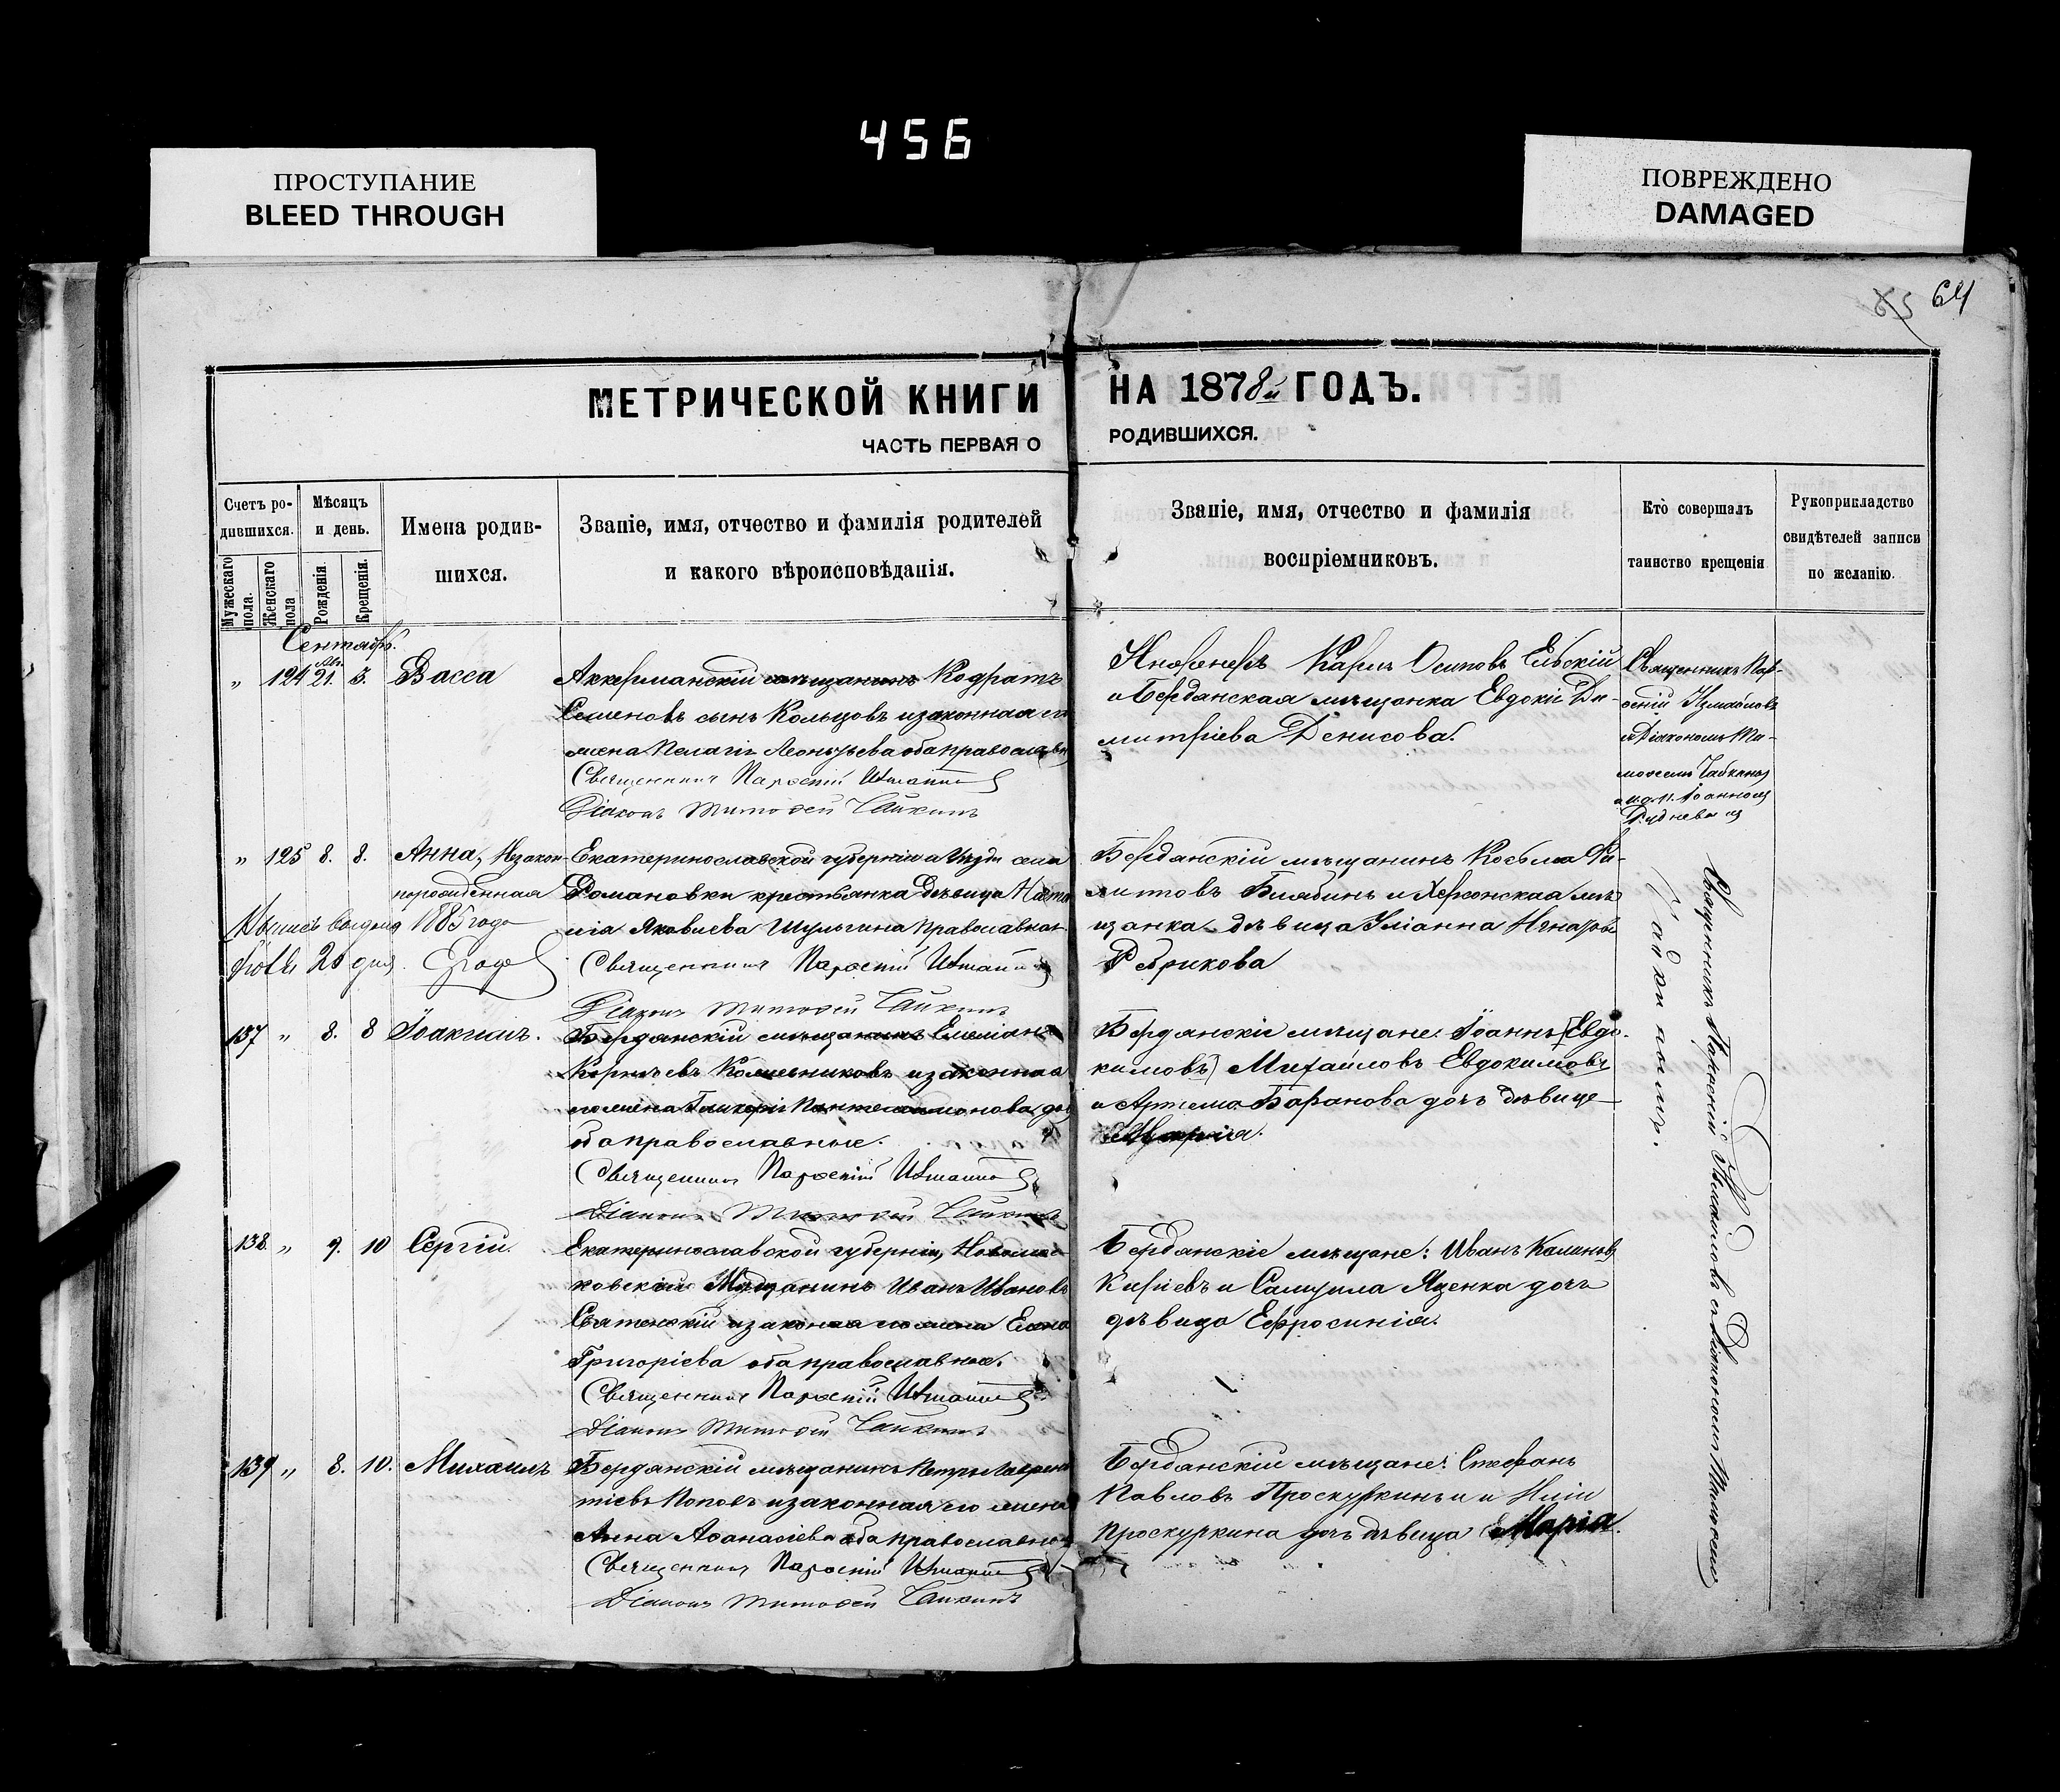 456
ПРОСТУПАНИЕ
BLEED THROUGH
ПОВРЕЖДЕНО
DAMAGED
64
МЕТРИЧЕСКОЙ КНИГИ НА 1878й ГОДЪ.
ЧАСТЬ ПЕРВАЯ О РОДИВШИХСЯ.
Счетъ ро-
дившихся.
Мужескаго пола.
Женскаго пола
Мѣсяцъ
и день.
Рожденія.
Крещенія.
Имена родив-
шихся.
Званіе, имя, отчество и фамилія родителей
и какого вѣроисповѣданія.
Званіе, имя, отчество и фамилія
воспріемниковъ.
Кто совершалъ
таинство крещенія
Рукоприкладство
свидѣтелей записи
по желанію.
Сентябрь.
" 124 Авг. 21. 3. Васса
Аккерманскій мѣщанинъ Кодратъ
Семеновъ сынъ Кольцовъ и законная его
жена Пелагія Леонтьева оба православн
Священникъ Парѳеній
Діаконъ Тимоѳей Чайкинъ
Карпъ Осиповъ
и Бердянская мѣщанка Евдокія Ди-
митріева Денисова.
Священникъ Пар-
ѳеній Измаиловъ
съ Діакономъ Ти-
моѳеемъ Чайкинымъ
Іоанномъ
" 125 8. 8. Анна, Незакон-
норожденная
Екатеринославской губерніи и Уѣзда села
Романовки крестьянка дѣвица Ната
лія Яковлева Шульгина православная
Священникъ Парѳеній
Діаконъ Тимоѳей Чайкинъ
1885 года
20 дня
Бердянскій мѣщанинъ Косьма Фи-
липовъ и Херсонская мѣ
щанка дѣвица Уліанна
Ребрикова
137 " 8. 8 Іоакимъ.
Бердянскій мѣщанинъ Емеліанъ
Колесниковъ и законная
его жена Гликерія Пантелеимонова
оба православные.
Священникъ Парѳеній
Діаконъ Тимоѳей Чайкинъ
Бердянскіе мѣщане: Іоаннъ (Евдо-
кимовъ) Михайловъ Евдокимовъ
и Артема Баранова дочь дѣвица
Марія.
138. " 9. 10 Сергій.
Екатеринославской губерніи, Новомос-
ковскій Мѣщанинъ Иванъ Ивановъ
и законная его жена Елена
Григоріева оба православные.
Священникъ Парѳеній
Діаконъ Тимоѳей Чайкинъ
Бердянскіе мѣщане: Иванъ
и Самуила Яценка дочь
дѣвица Ефросинія.
139 " 8. 10. Михаилъ
Бердянскій мѣщанинъ Петръ Лаврен
тіевъ Поповъ и законная его жена
Анна Аѳанасіева оба православные
Священникъ Парѳеній
Діаконъ Тимоѳей Чайкинъ
Бердянскій мѣщане: Стефанъ
Павловъ Проскуркинъ и
Проскуркина дочь дѣвица Марія.
Священникъ Парѳеній Измаиловъ съ Діакономъ Тимоѳеемъ
Чайкинымъ.